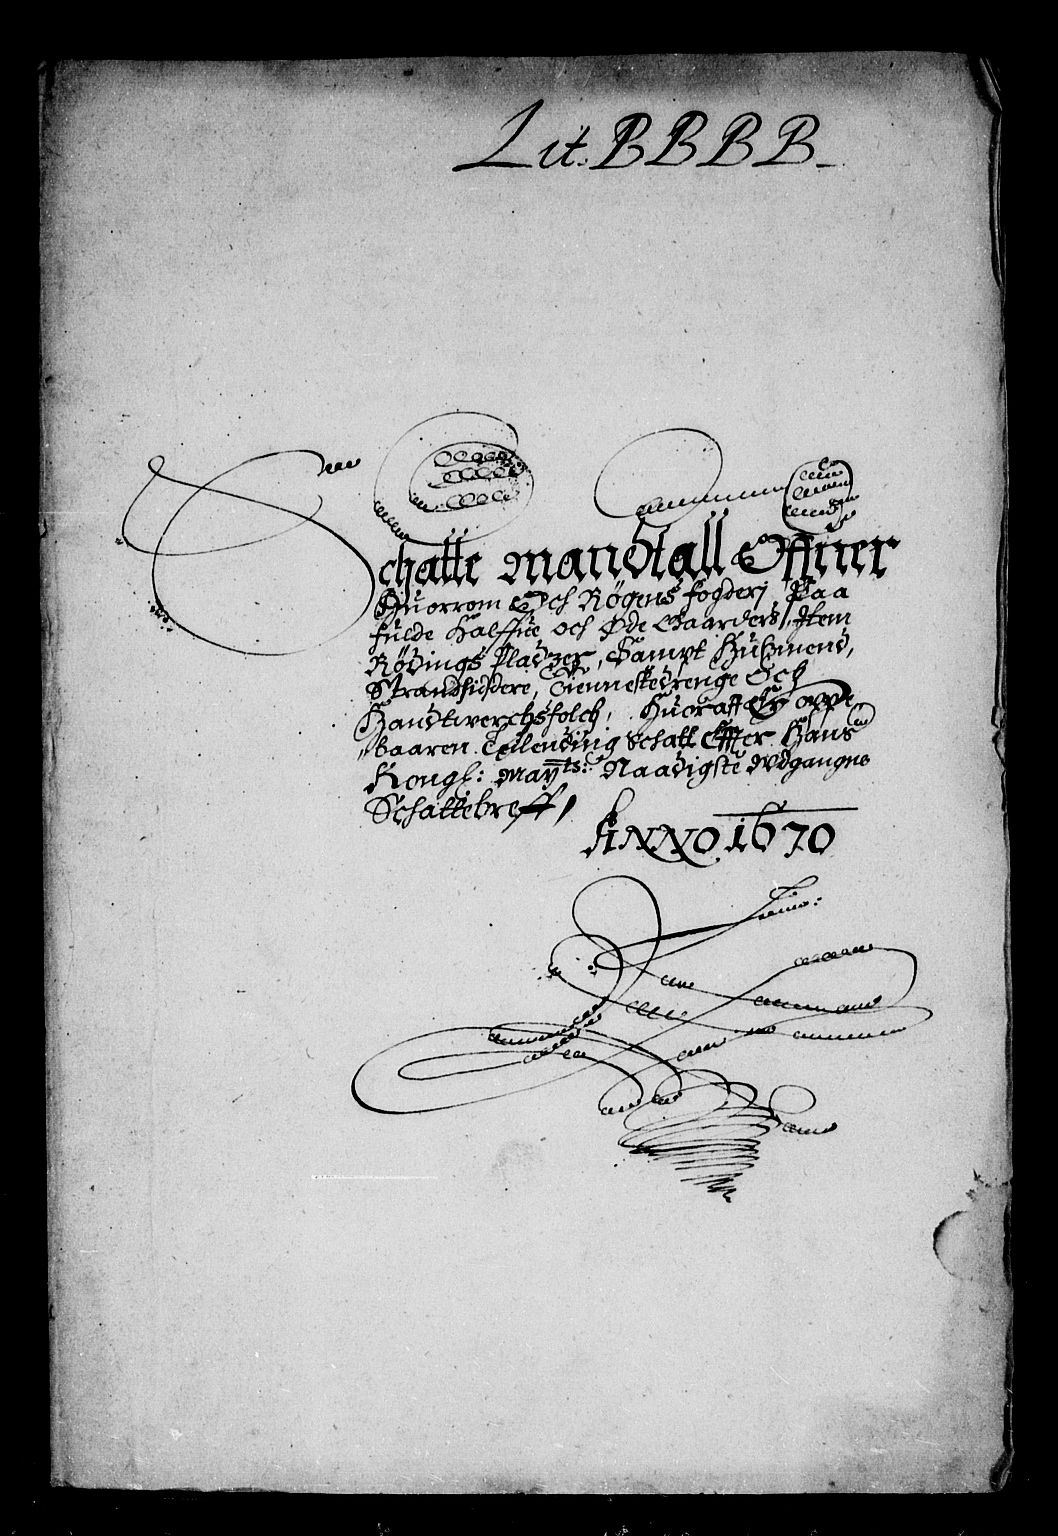 Lit. BBBB.
Schatte Mandtall Offuer
Huorrom Och Rögens fogderj, Paa
fulde Halffue och Øde Gaarder, Item
Rödings Pladzer, Sampt Huhmend,
Strandsidere, Tienneste drenge Och
Handtverchsfolch, Huoraff Er oppe,
baaren Tellending Schatt Effter Hans
Kongl: Mayts: Naadigste Udgangne
Schattebreff,
Anno 1670